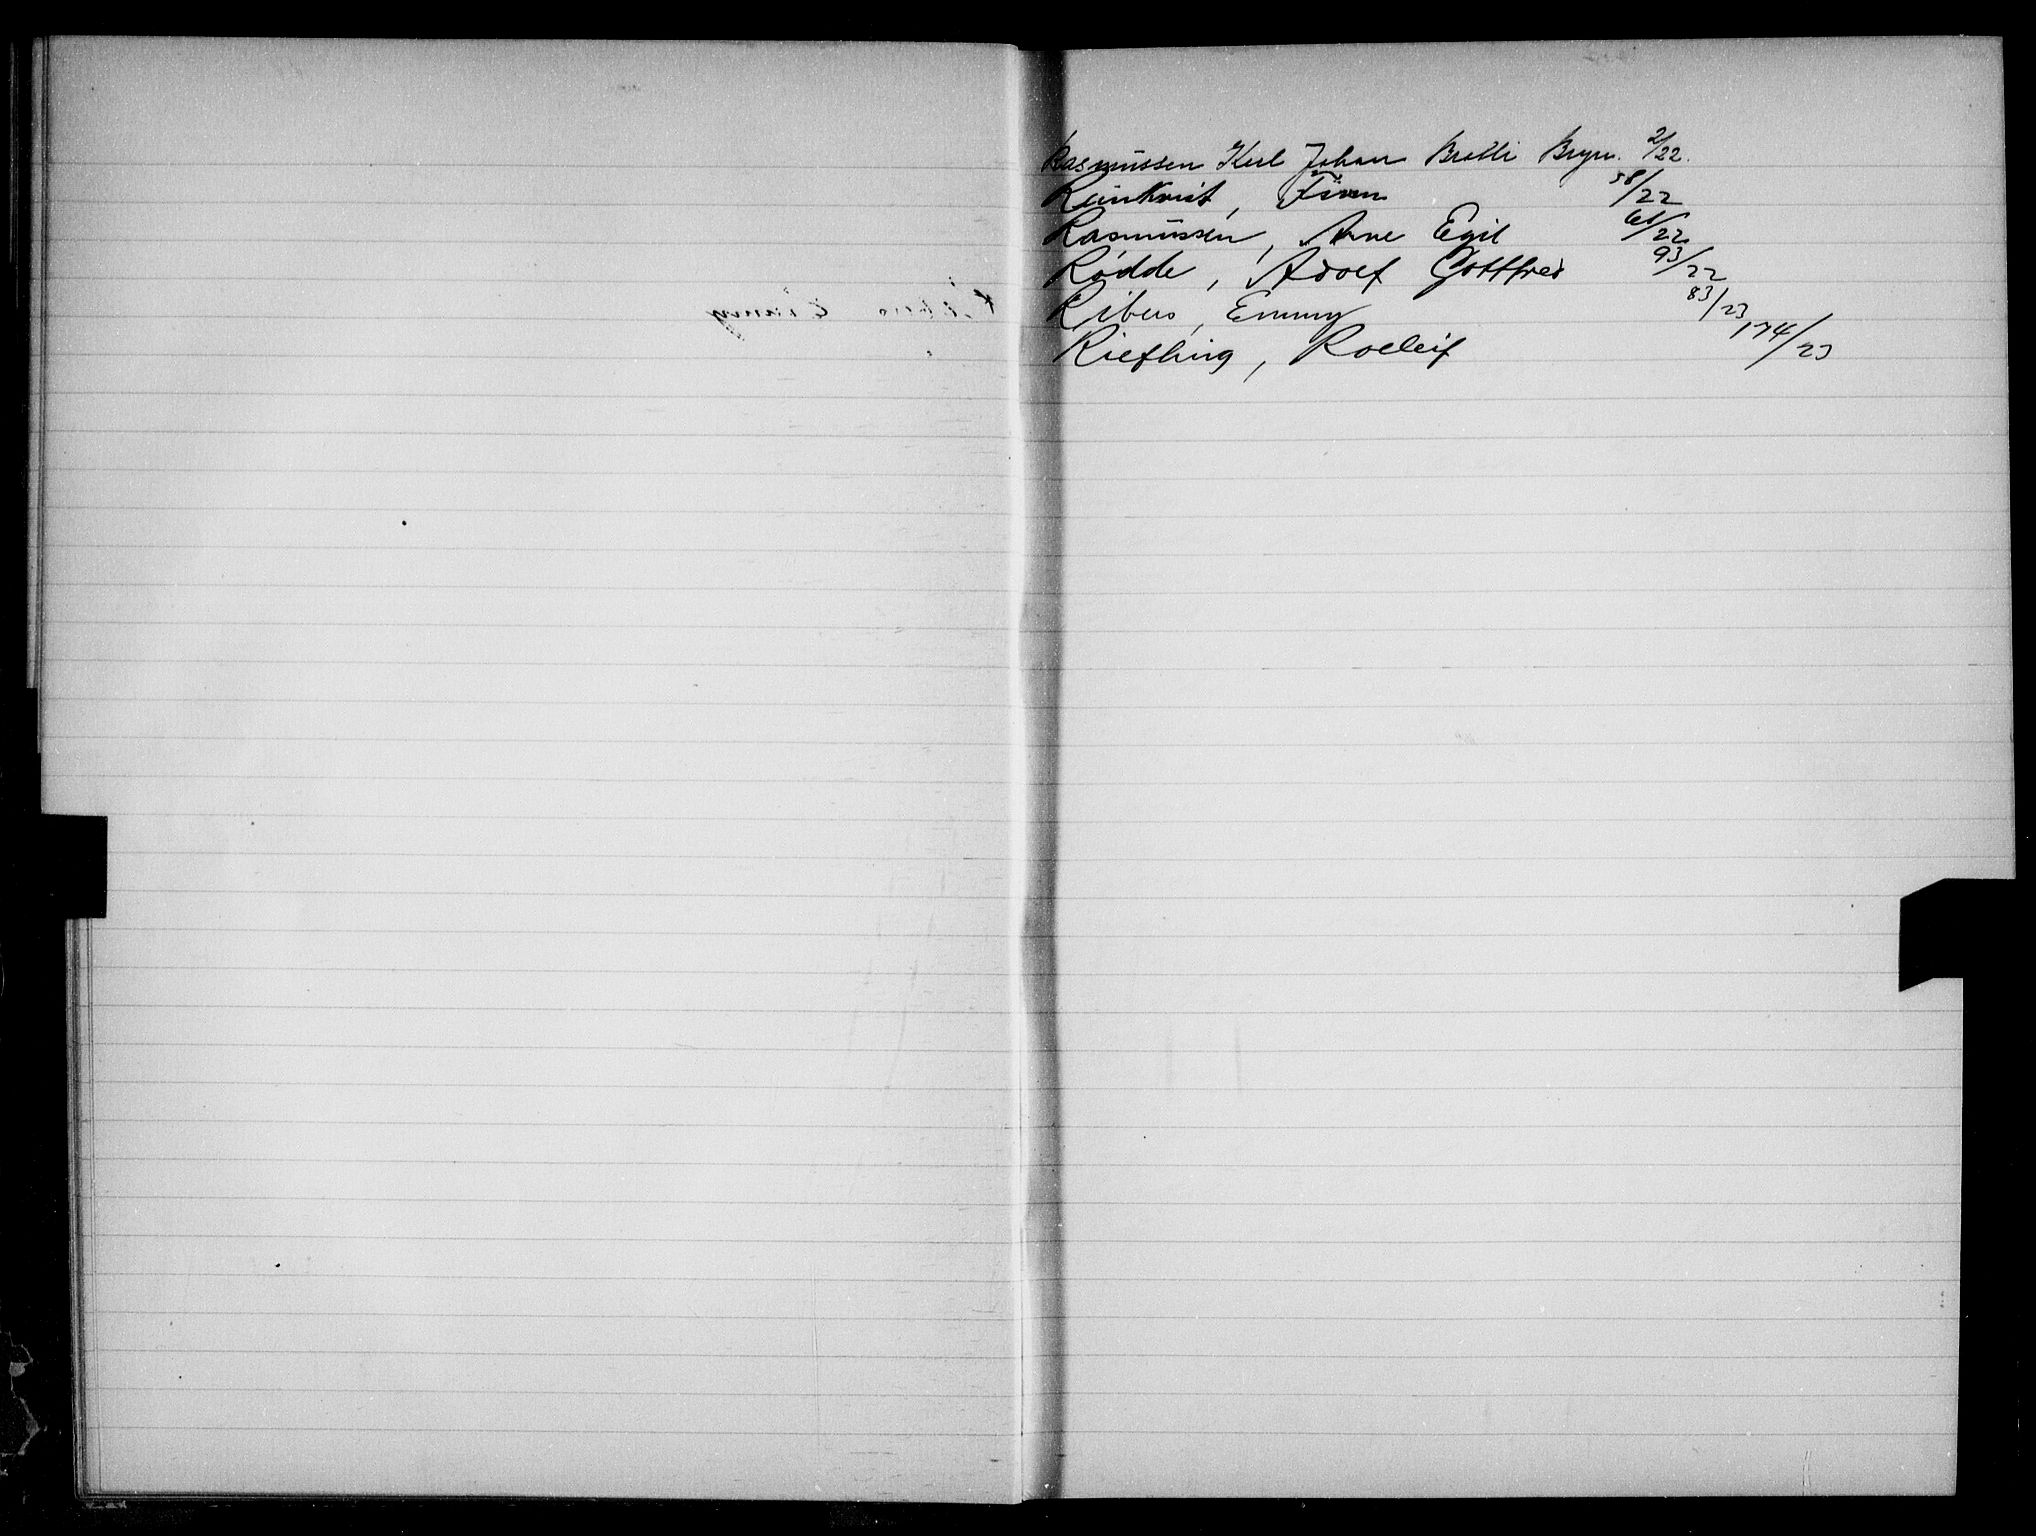 Rasmussen Karl Johan Bratli Bryn. 2/22.
Reinkvist, Finn 58/22
Rasmussen, Arne Egil 61/22
Rødde, Adolf Gottfred 93/22
Ribers, Emmy 83/23
Riefling, Rolleif 174/23